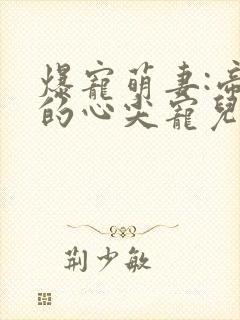 爆寵萌妻:帝
的心尖寵兒
荊少敏